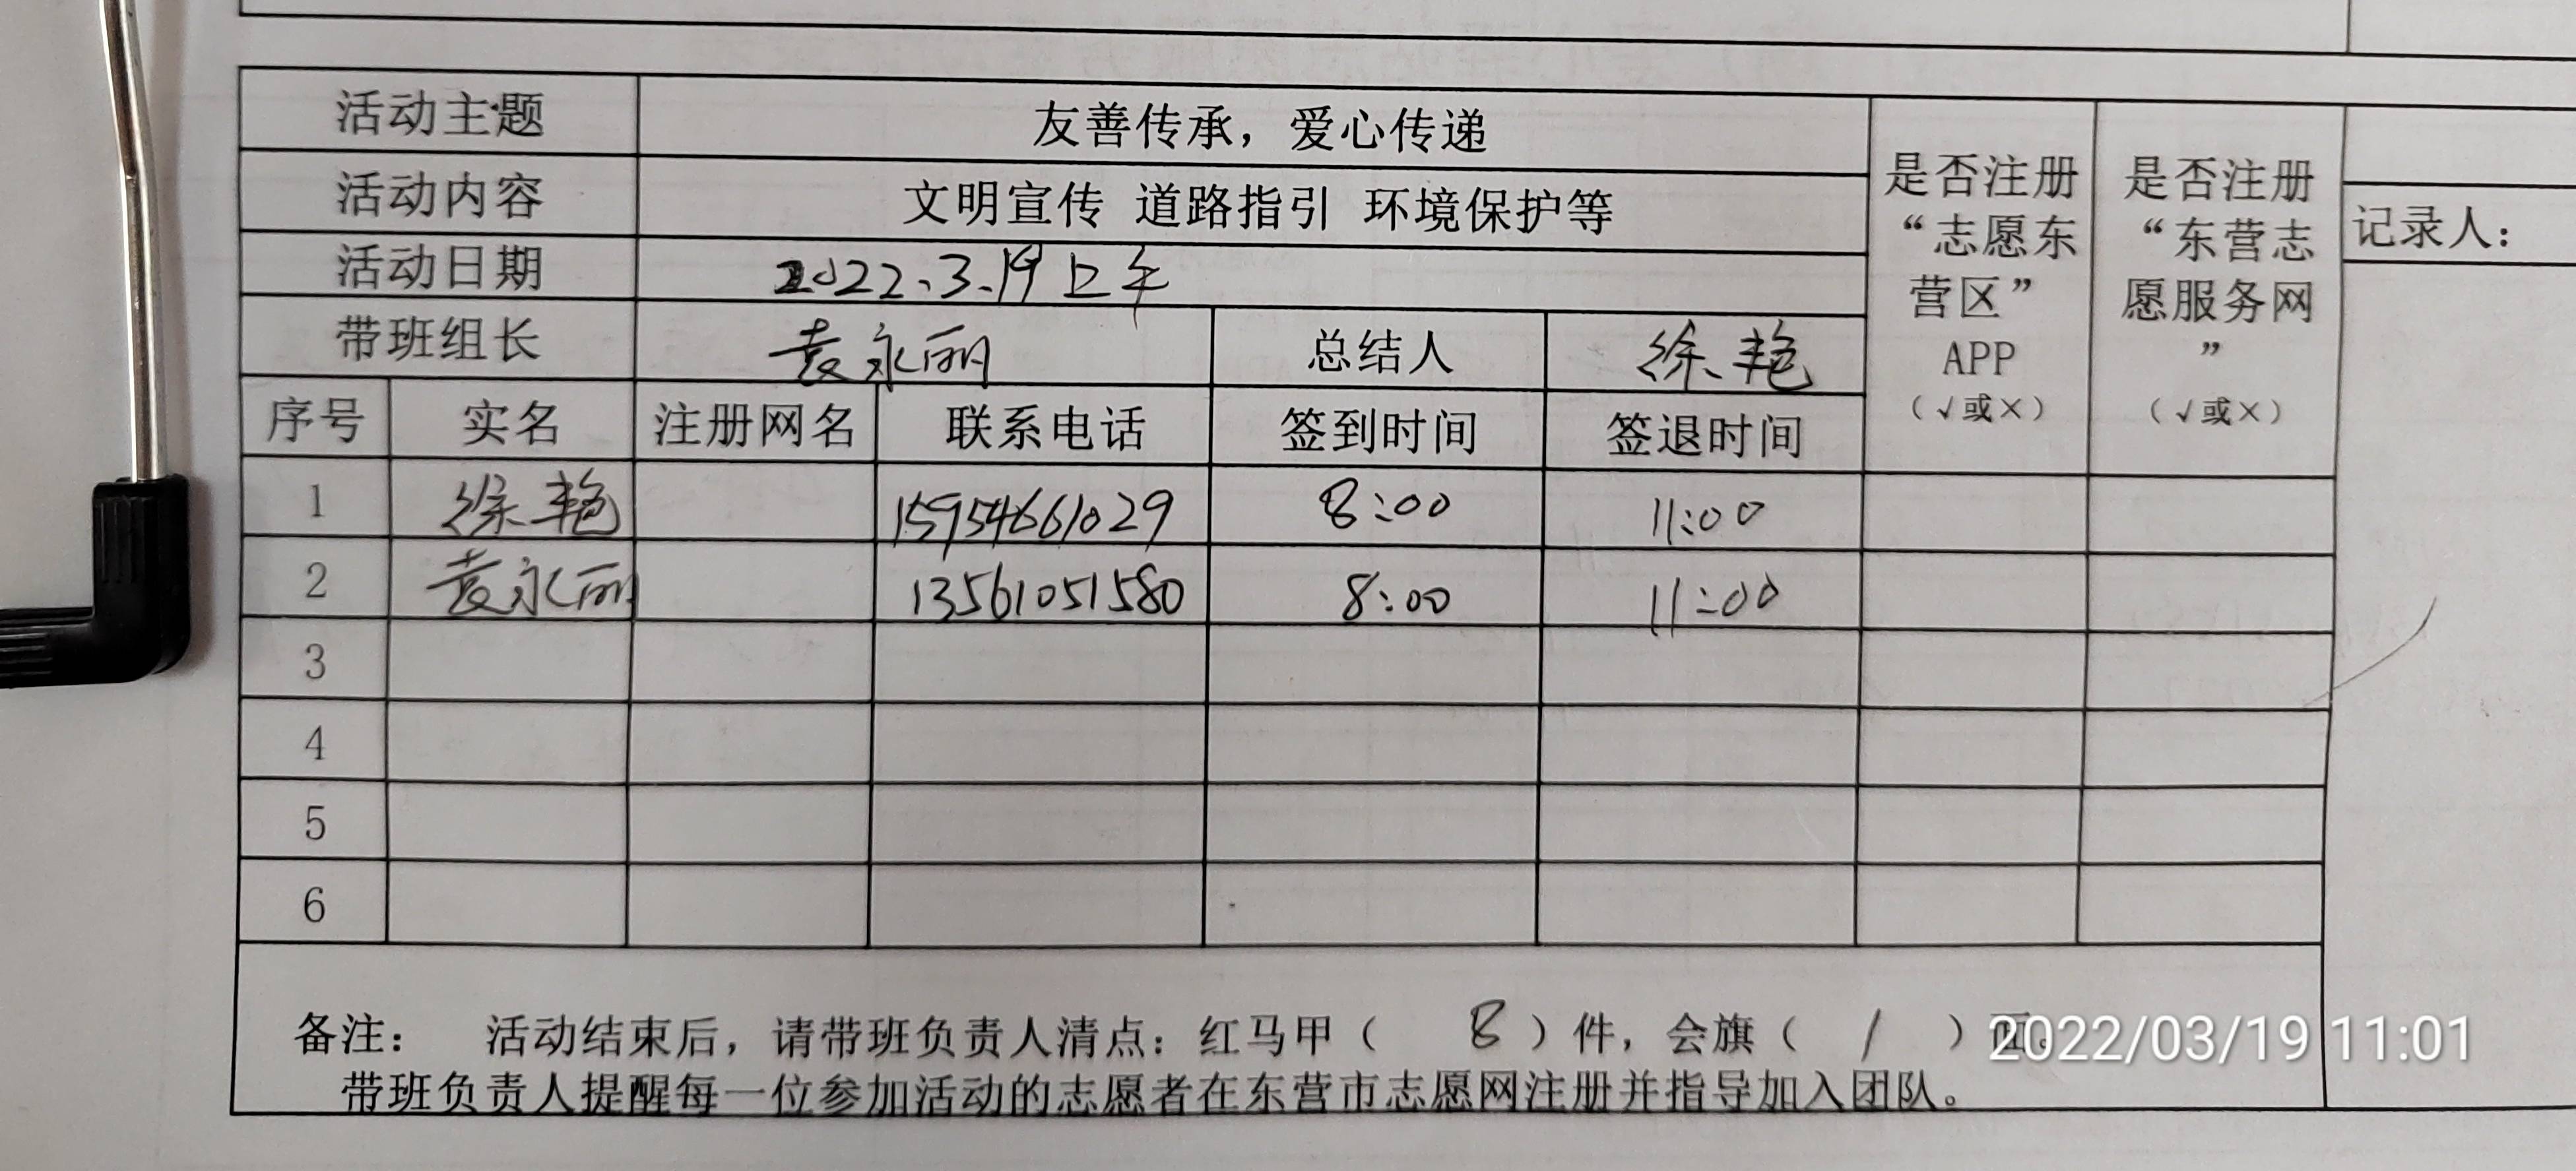 活动主题 友善传承，爱心传递 是否注册“志愿东营区”APP（√或×） 是否注册“东营志愿服务网”（√或×）
活动内容 文明宣传 道路指引 环境保护等 记录人：
活动日期 2022.3.19上午
带班组长 袁永丽 总结人 徐艳
序号 实名 注册网名 联系电话 签到时间 签退时间
1 徐艳 15954661029 8:00 11:00
2 袁永丽 13561051580 8:00 11:00
3
4
5
6
备注： 活动结束后，请带班负责人清点：红马甲（ 8 ）件，会旗（ / ）面。
带班负责人提醒每一位参加活动的志愿者在东营市志愿网注册并指导加入团队。
2022/03/19 11:01